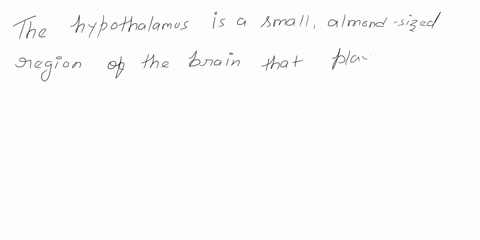 The hypothalamus is a small, almond-sized
region of the brain that